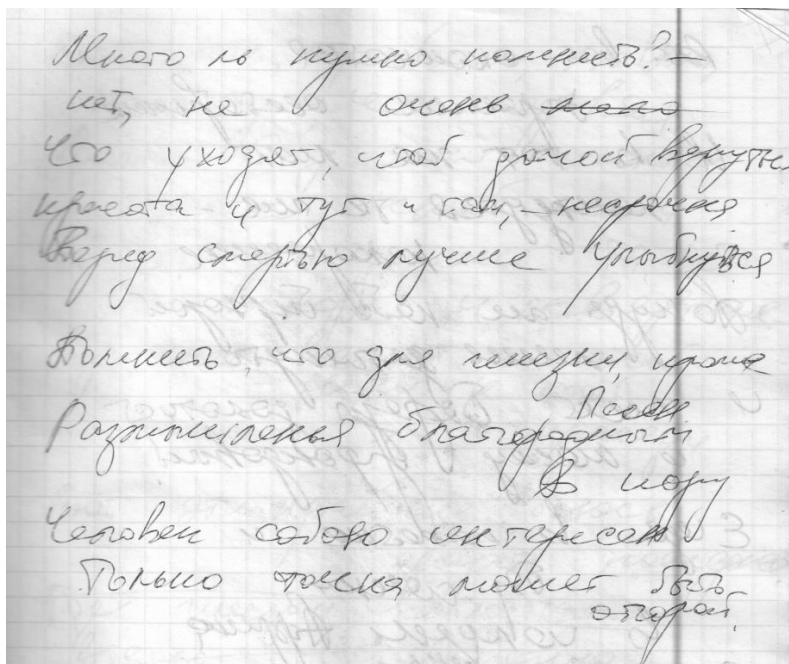 Много ль нужно помнить? –
нет, не очень мало
Что уходят, чтоб домой вернуться
красота и тут и там, – несрочная
Перед смертью лучше улыбнуться
Помнить, что для жизни, кроме
Песен
Размышленья благородным
в пору
Человек собою интересен
Только точка может быть
опорой.